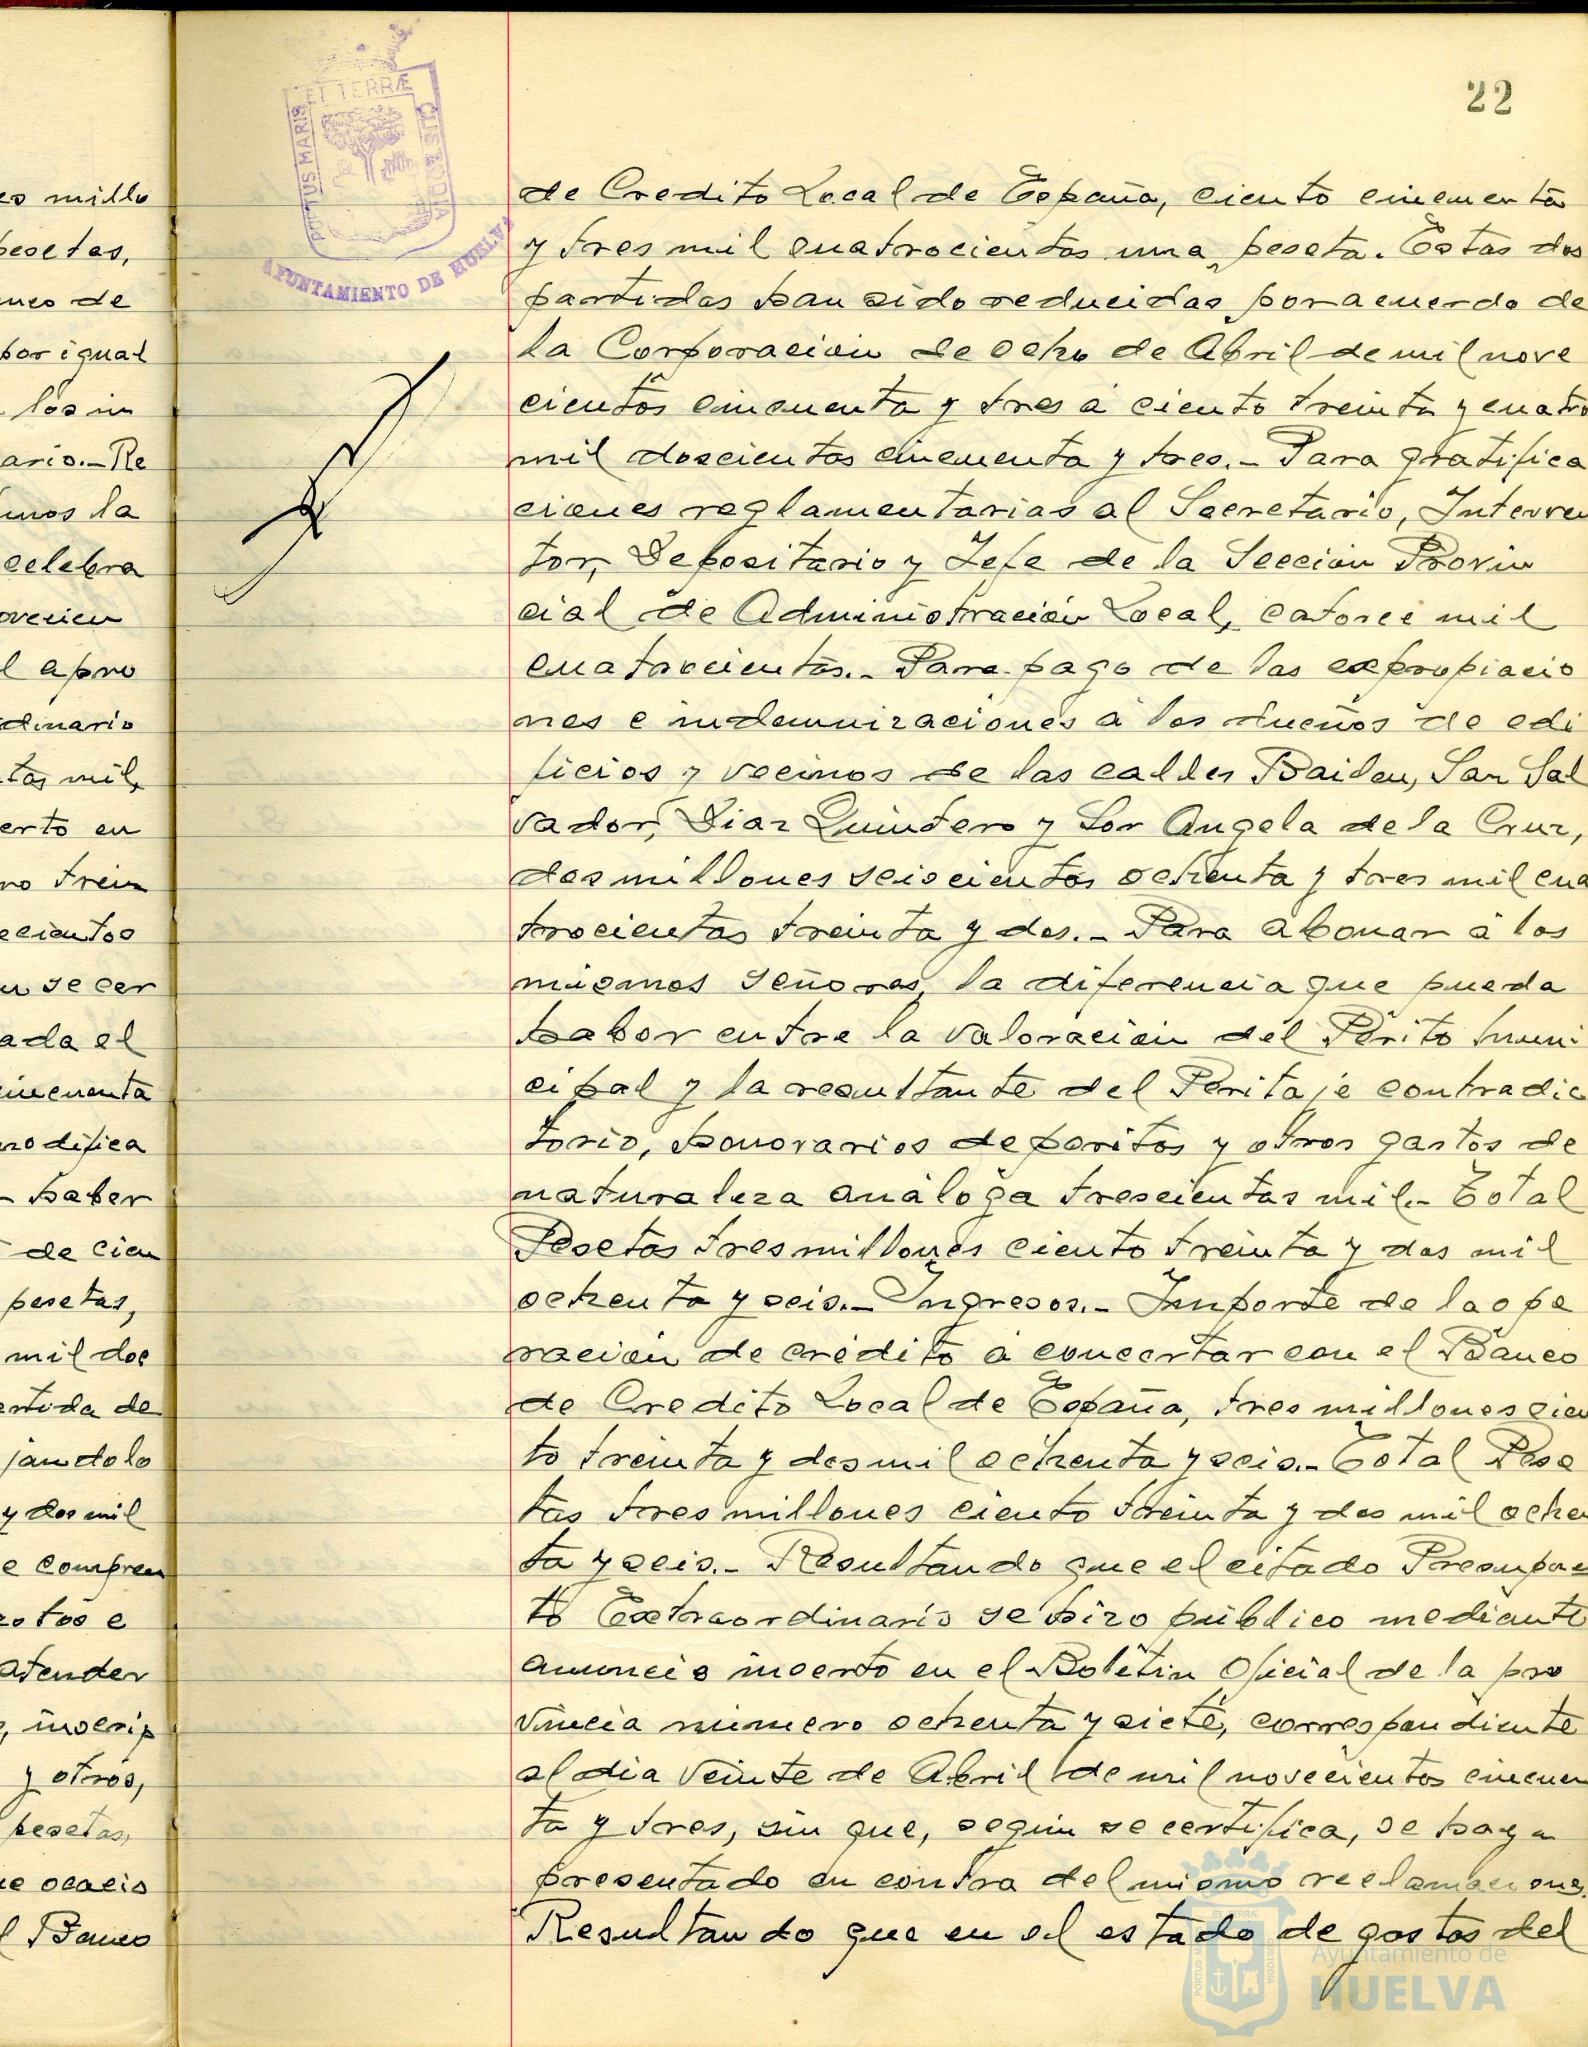 22
ET TERRÆ
PORTUS MARIS
CUSTODIA
AYUNTAMIENTO DE HUELVA
es millo
pesetas,
anco de
por igual
los in
ario.- Re
imos la
celebra
ovecien
l apro
dinario
tas mil,
erto en
no trein
ecientos
n se cer
ada el
cincuenta
modifica
- haber
de cien
pesetas,
mil dos
artida de
jandolo
y dos mil
e compren
ectos e
atender
, inscrip
y otros,
pesetas,
ue ocacio
l Banco
de Credito Local de España, ciento cincuenta
y tres mil cuatrocientas una peseta. Estas dos
partidas han sido reducidas por acuerdo de
la Corporacion de ocho de Abril de mil nove
cientos cincuenta y tres á ciento treinta y cuatro
mil doscientas cincuenta y tres.- Para gratifica
ciones reglamentarias al Secretario, Interven
tor, Depositario y Jefe de la Seccion Provin
cial de Administración Local, catorce mil
cuatrocientas.- Para pago de las expropiacio
nes e indemnizaciones á los dueños de edi
ficios y vecinos de las calles Bailen, San Sal
vador, Diaz Quintero y Sor Angela de la Cruz,
dos millones seiscientas ochenta y tres mil cua
trocientas treinta y dos.- Para abonar á los
mismos señores, la diferencia que pueda
haber entre la valoracion del Périto muni
cipal y la resultante del Peritaje contradic
torio, honorarios de peritos y otros gastos de
naturaleza análoga trescientas mil.- Total
Pesetas tres millones ciento treinta y dos mil
ochenta y seis.- Ingresos.- Importe de la ope
ración de crédito á concertar con el Banco
de Credito Local de España, tres millones cien
to treinta y dos mil ochenta y seis.- Total Pese
tas tres millones ciento treinta y dos mil ochen
ta y seis.- Resultando que el citado Presupues
to Extraordinario se hizo público mediante
anuncio inserto en el Boletin Oficial de la pro
vincia número ochenta y siete, correspondiente
al dia veinte de Abril de mil novecientos cincuen
ta y tres, sin que, segun se certifica, se haya
presentado en contra del mismo reclamaciones.
Resultando que en el estado de gastos del
Ayuntamiento de
HUELVA